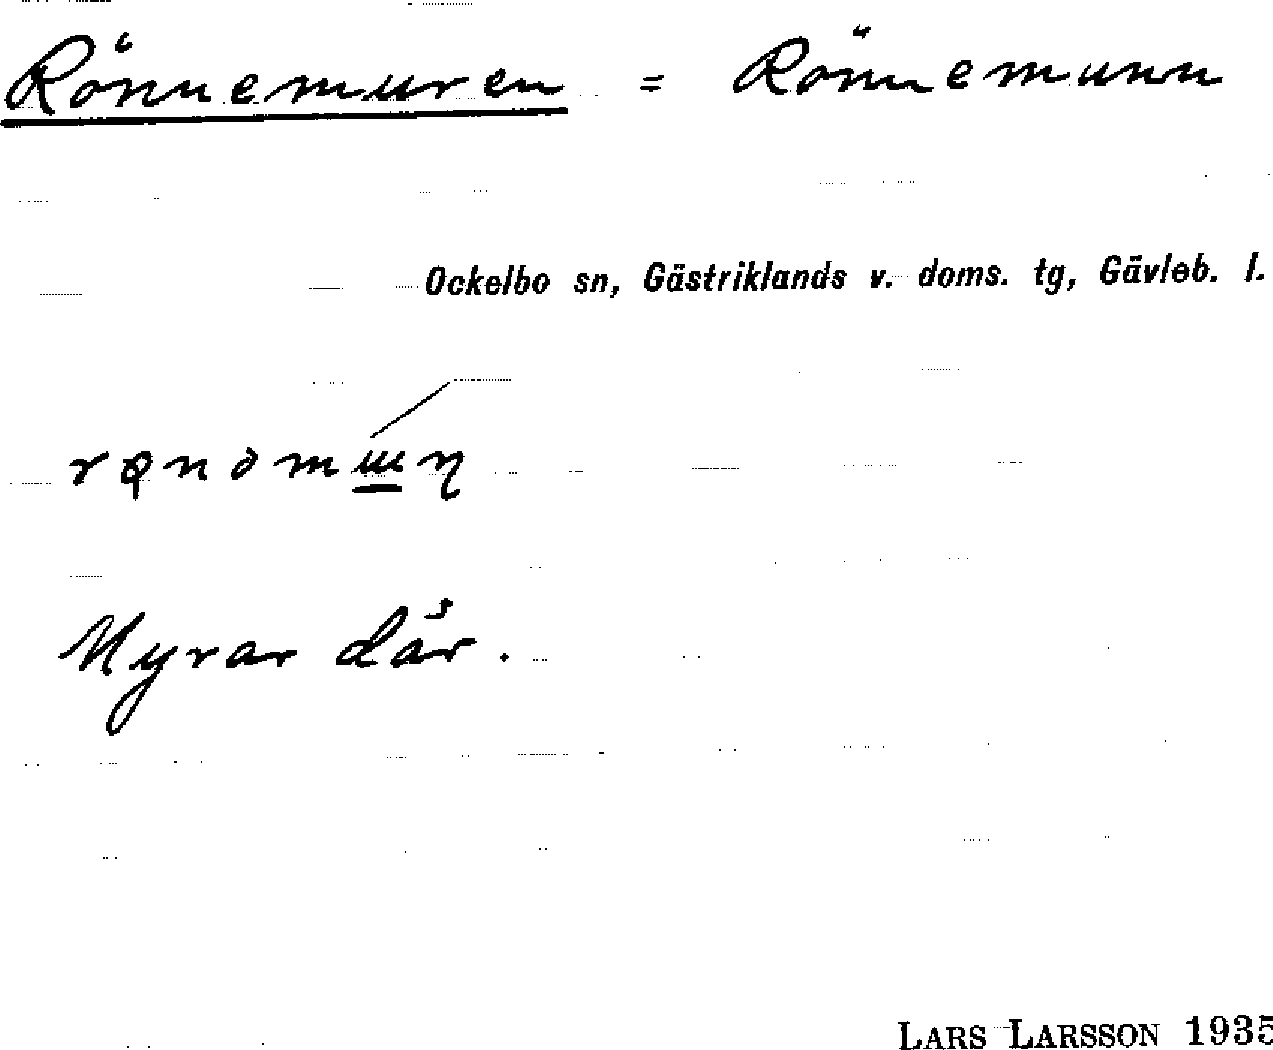 Rönnemuren = Rönnemuren
Ockelbo sn, Gästriklands v. doms. tg, Gävleb. l.
Myrar där.
LARS LARSSON 1935